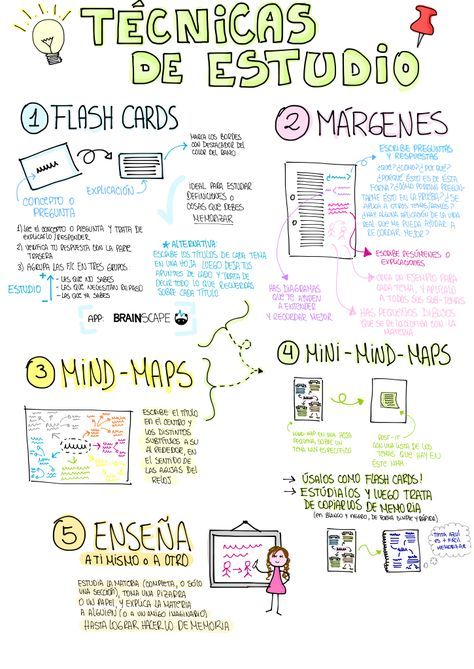 TÉCNICAS
DE ESTUDIO
1 FLASH CARDS
MARCA LOS BORDES
CON DESTACADOR DEL
COLOR DEL RAMO
EXPLICACIÓN
CONCEPTO O
PREGUNTA
IDEAL PARA ESTUDIAR
DEFINICIONES O
COSAS QUE DEBES
MEMORIZAR
1) Lee el CONCEPTO O PREGUNTA Y TRATA DE
EXPLICARLO / RESPONDER.
2) VERIFICA TU RESPUESTA CON LA PARTE
TRASERA
3) AGRUPA LAS F/C EN TRES GRUPOS:
ESTUDIO
- LAS QUE NO SABES
- LAS QUE NECESITAN REPASO
- LAS QUE YA SABES
* ALTERNATIVA:
ESCRIBE LOS TÍTULOS DE CADA TEMA
EN UNA HOJA. LUEGO DEJA TUS
APUNTES DE LADO Y TRATA DE
DECIR TODO LO QUE RECUERDAS
SOBRE CADA TÍTULO.
APP: BRAINSCAPE
2 MÁRGENES
ESCRIBE PREGUNTAS
Y RESPUESTAS
¿QUÉ? ¿CÓMO? ¿POR QUÉ?
¿PORQUÉ ESTO ES DE ESTA
FORMA? ¿CÓMO PODRÍAN PREGUN-
TARME ESTO EN LA PRUEBA? ¿SE
APLICA A OTROS TEMAS/RAMOS?
¿HAY ALGUNA APLICACIÓN DE LA VIDA
REAL QUE ME PUEDA AYUDAR A
RECORDAR MEJOR?
ESCRIBE RESÚMENES O
EXPLICACIONES
CREA UN EJEMPLO PARA
CADA TEMA, Y APLÍCALO
A TODOS SUS SUB-TEMAS
HAZ DIAGRAMAS
QUE TE AYUDEN
A ENTENDER
Y RECORDAR MEJOR
HAZ PEQUEÑOS DIBUJOS
QUE SE RELACIONEN CON LA
MATERIA
3 MIND-MAPS
ESCRIBE EL TÍTULO
EN EL CENTRO Y
LOS DISTINTOS
SUBTÍTULOS A SU
ALREDEDOR, EN
EL SENTIDO DE
LAS AGUJAS DEL
RELOJ
4 MINI-MIND-MAPS
MIND MAP EN UNA HOJA
PEQUEÑA, SOBRE UN
TEMA MUY ESPECÍFICO
POST-IT
CON UNA LISTA DE LOS
TEMAS QUE HAY EN
ESTE MMM
→ ÚSALOS COMO FLASH CARDS!
→ ESTÚDIALOS Y LUEGO TRATA
DE COPIARLOS DE MEMORIA
(EN BLANCO Y NEGRO, DE FORMA SIMPLE Y RÁPIDA)
TINTA AZUL
ES + FÁCIL
MEMORIZAR
5 ENSEÑA
A TI MISMO O A OTRO
ESTUDIA LA MATERIA (COMPLETA, O SOLO
UNA SECCIÓN), TOMA UNA PIZARRA
O UN PAPEL, Y EXPLICA LA MATERIA
A ALGUIEN (O A UN AMIGO IMAGINARIO)
HASTA LOGRAR HACERLO DE MEMORIA